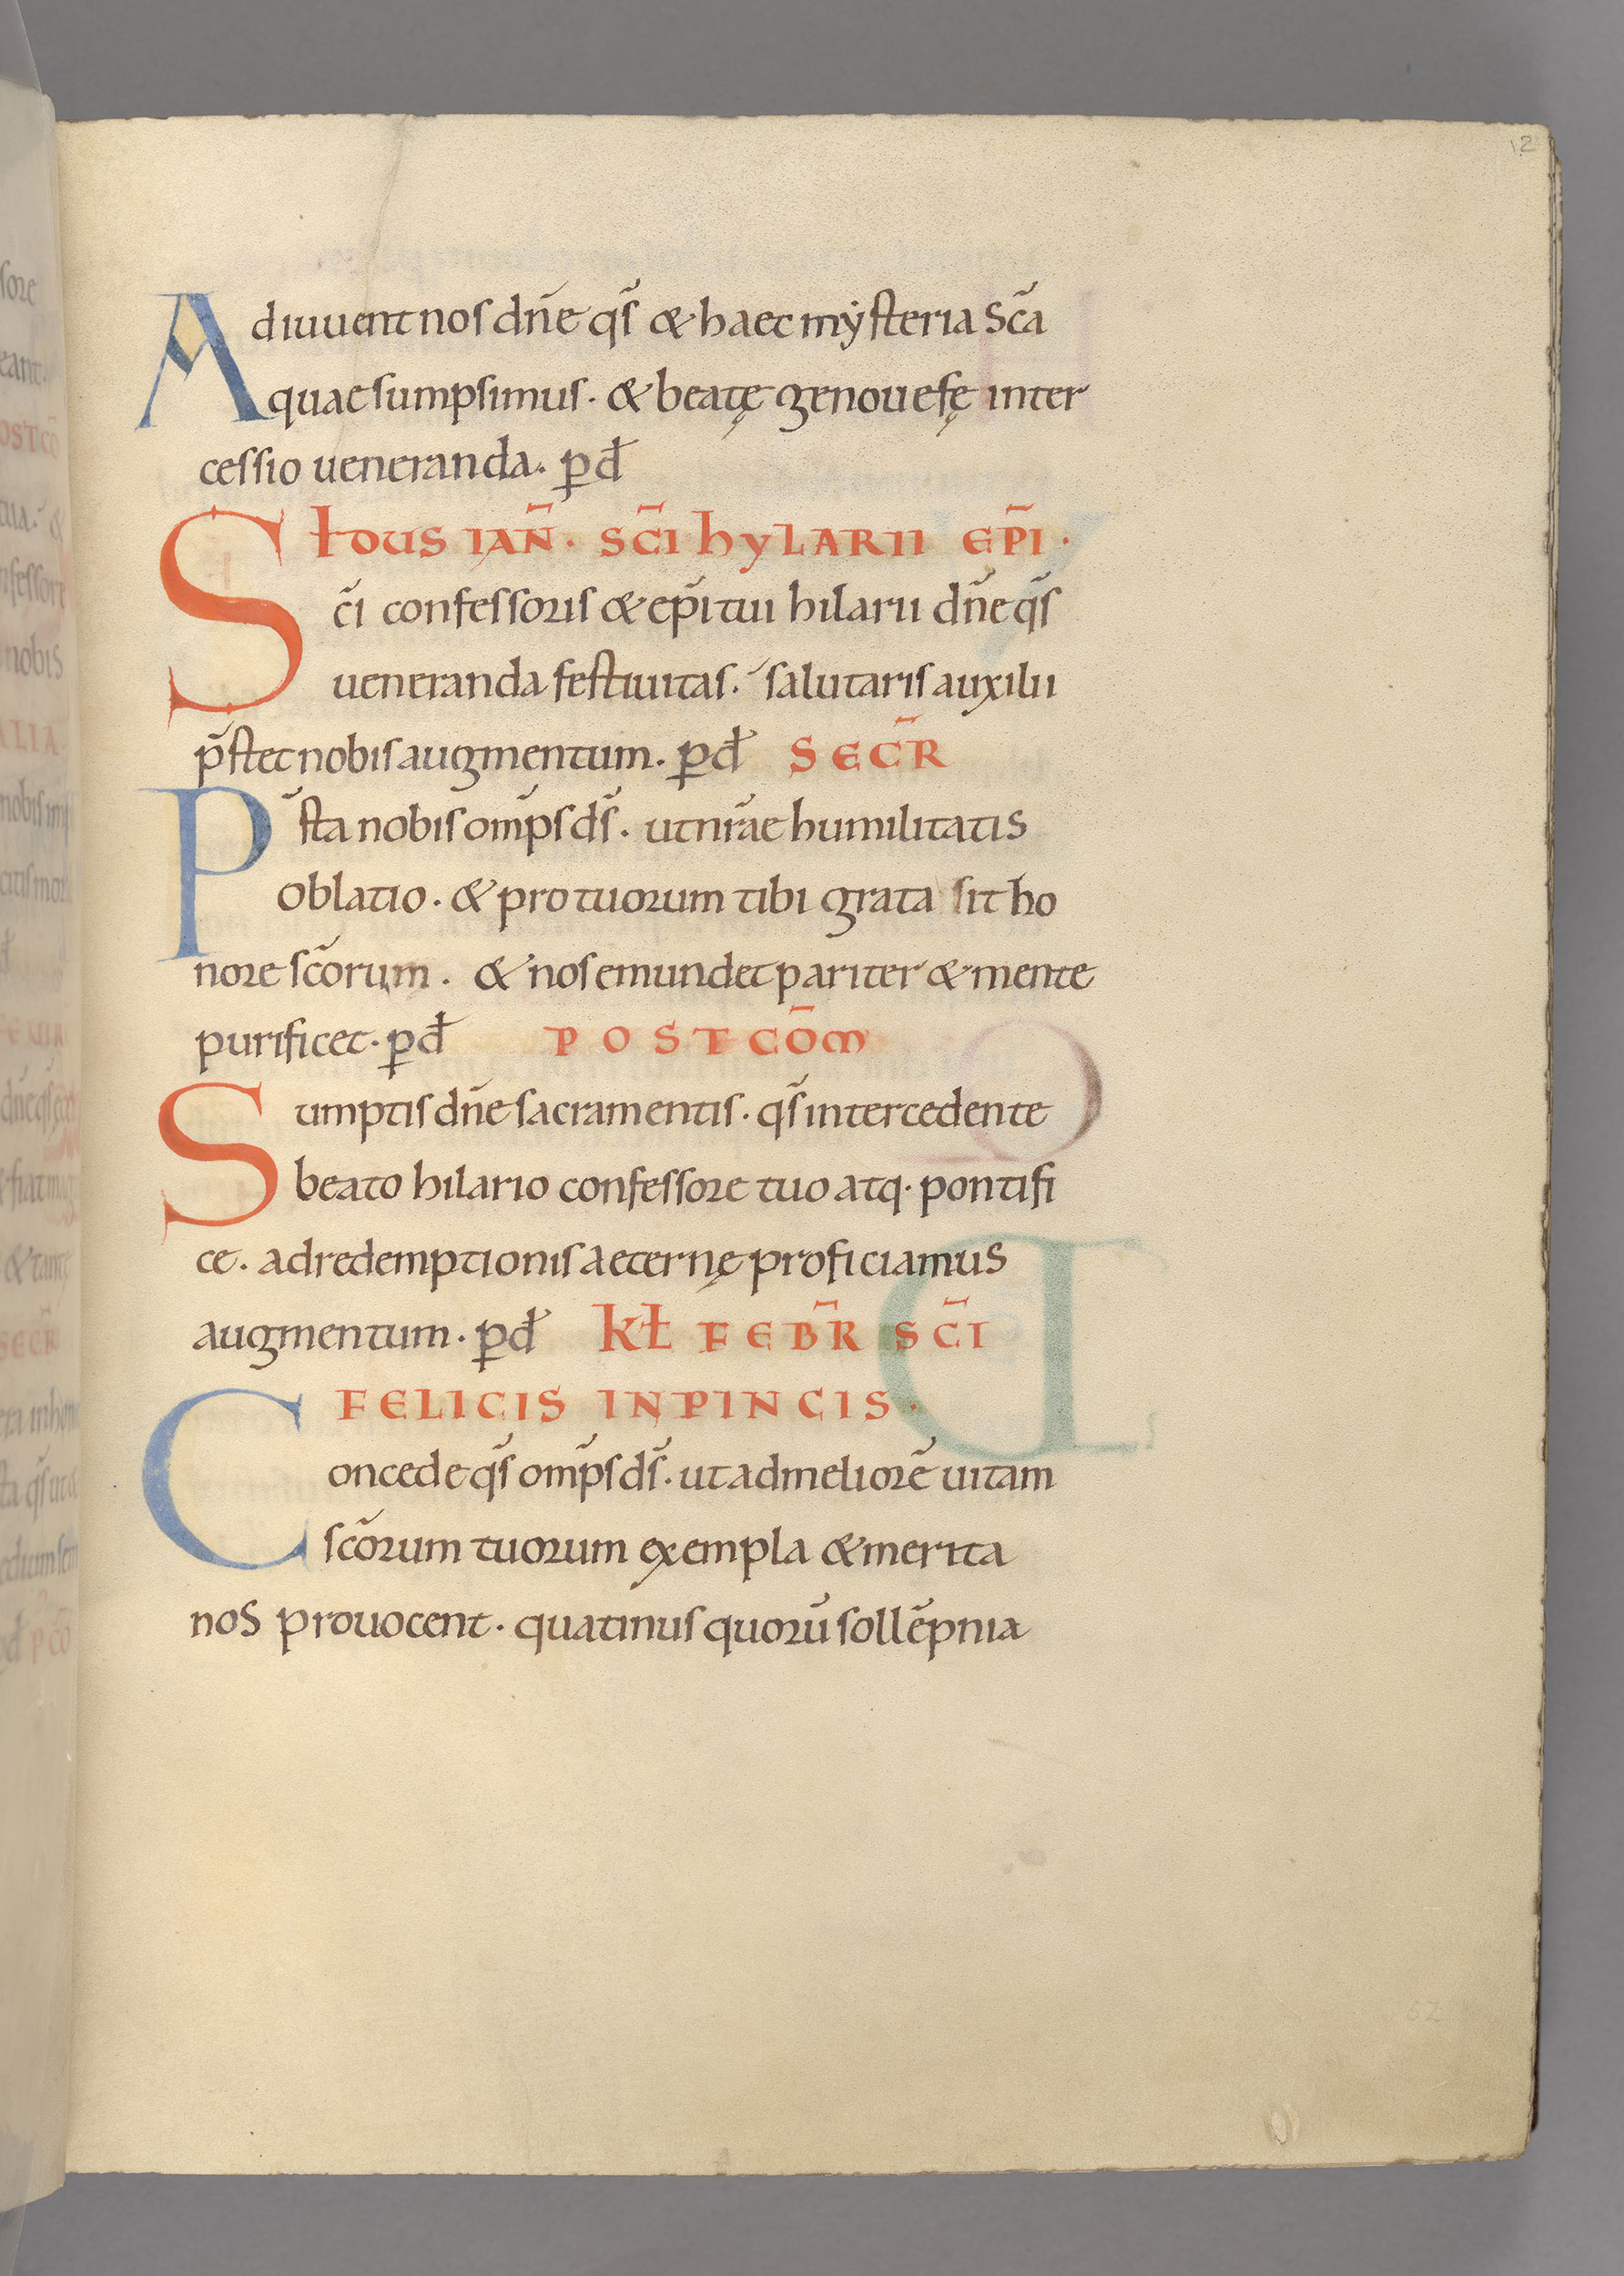 12
Adiuuent nos dn̄e qs̄ & haec mẏsteria sc̄a
quae sumpsimus· & beatę genouefę inter
cessio ueneranda· ꝑ d̄
Idus ian̄· sc̄i hylarii ep̄i·
Sc̄i confessoris & ep̄i tui hilarii dn̄e qs̄
ueneranda festiuitas· salutaris auxilii
p̄stet nobis augmentum· ꝑ d̄ SECR̄
P̄sta nobis omp̄s ds̄· ut nr̄ae humilitatis
oblatio· & pro tuorum tibi grata sit ho
nore sc̄orum· & nos emundet pariter & mente
purificet· ꝑ d̄ POSTCOM̄
Sumptis dn̄e sacramentis· qs̄ intercedente
beato hilario confessore tuo atq· pontifi
ce· ad redemptionis aeternę proficiamus
augmentum· ꝑ d̄ Kł FEBR̄ SC̄I
FELICIS INPINCIS·
Concede qs̄ omp̄s ds̄· ut ad meliorē uitam
sc̄orum tuorum exempla & merita
nos prouocent· quatinus quorū sollēpnia